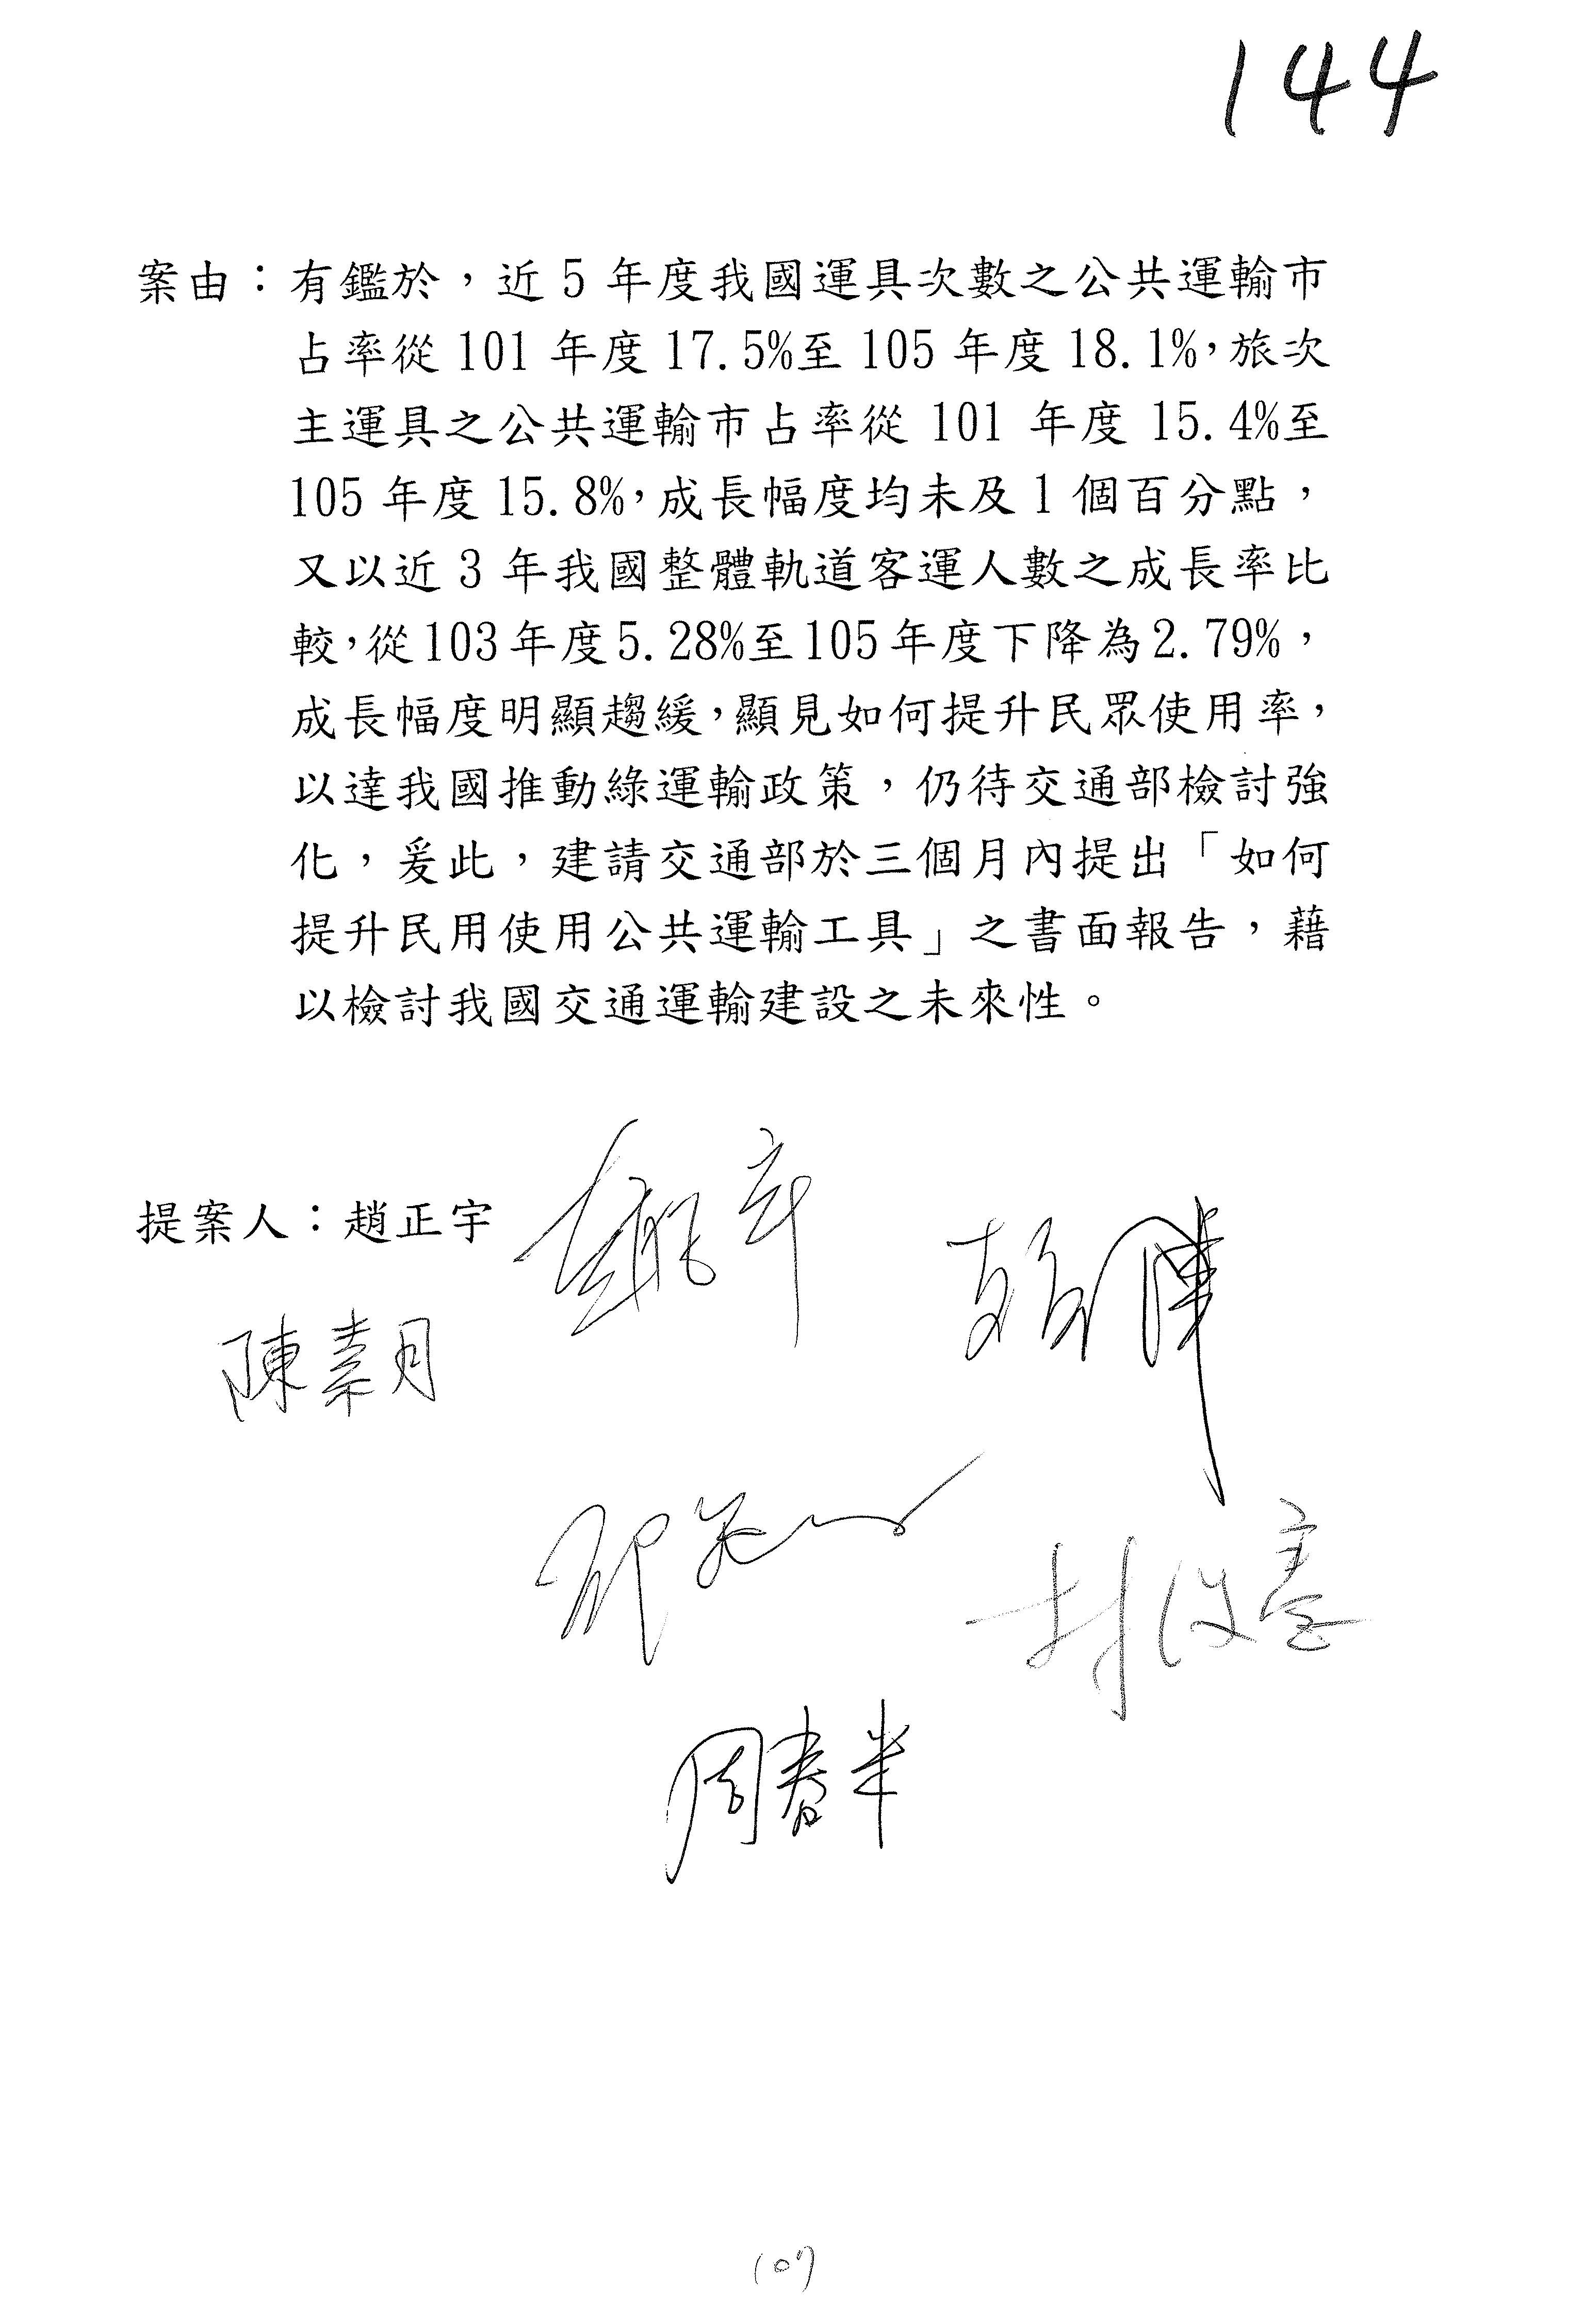 144
案由：有鑑於，近5年度我國運具次數之公共運輸市
占率從101年度17.5%至105年度18.1%，旅次
主運具之公共運輸市占率從101年度15.4%至
105年度15.8%，成長幅度均未及1個百分點，
又以近3年我國整體軌道客運人數之成長率比
較，從103年度5.28%至105年度下降為2.79%，
成長幅度明顯趨緩，顯見如何提升民眾使用率，
以達我國推動綠運輸政策，仍待交通部檢討強
化，爰此，建請交通部於三個月內提出「如何
提升民用使用公共運輸工具」之書面報告，藉
以檢討我國交通運輸建設之未來性。
提案人：趙正宇
陳素月
林俊憲
周春米
107